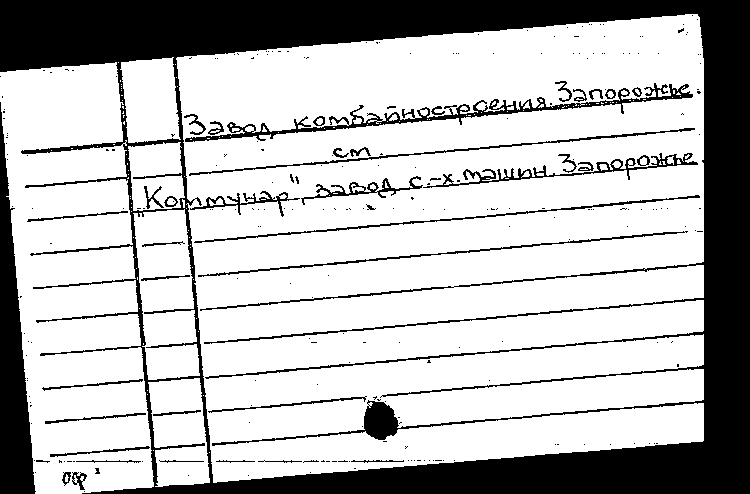 Завод комбайностроения. Запорожье.
см.
"Коммунар", завод с.-х. машин. Запорожье.